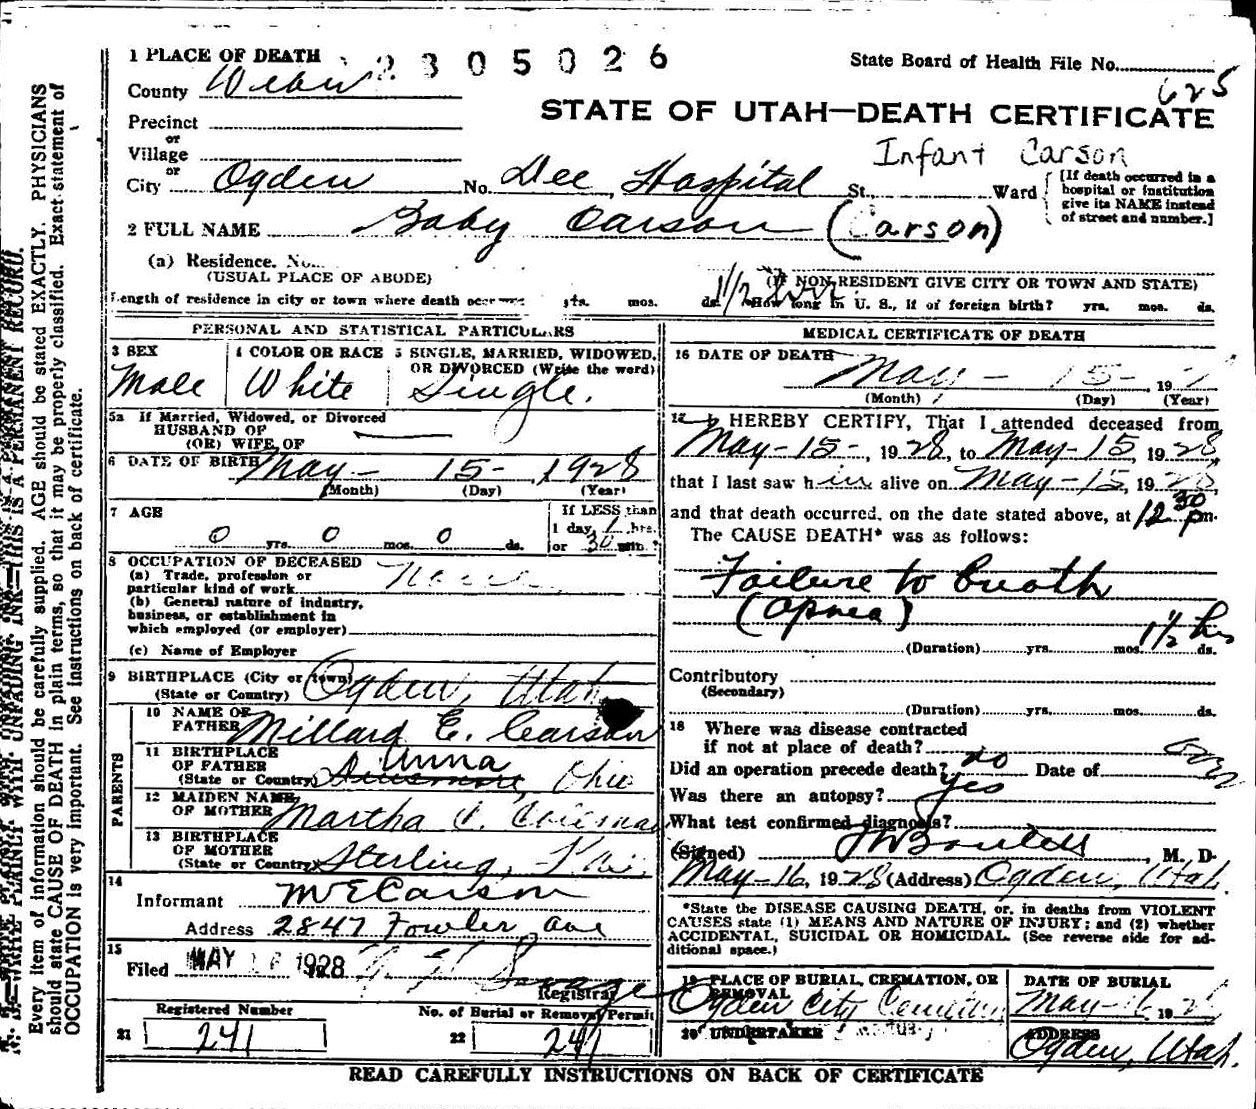 1 PLACE OF DEATH 2305026
State Board of Health File No. 625
County Weber
STATE OF UTAH—DEATH CERTIFICATE
Precinct
or
Village
Infant Carson
or
City Ogden No. Dee Hospital St. Ward
[If death occurred in a hospital or institution give its NAME instead of street and number.]
2 FULL NAME Baby Carson (Carson)
(a) Residence. No.
(USUAL PLACE OF ABODE)
(If NON-RESIDENT GIVE CITY OR TOWN AND STATE)
Length of residence in city or town where death occurred yrs. mos. ds. 1 1/2 hrs. How long in U. S., if of foreign birth? yrs. mos. ds.
PERSONAL AND STATISTICAL PARTICULARS
3 SEX 4 COLOR OR RACE 5 SINGLE, MARRIED, WIDOWED,
OR DIVORCED (Write the word)
Male White Single.
5a If Married, Widowed, or Divorced
HUSBAND OF
(OR) WIFE OF
6 DATE OF BIRTH May - 15 - 1928
(Month) (Day) (Year)
7 AGE
0 yrs. 0 mos. 0 ds.
If LESS than
1 day, 1 hrs.
or 30 min.?
8 OCCUPATION OF DECEASED
(a) Trade, profession or
particular kind of work None
(b) General nature of industry,
business, or establishment in
which employed (or employer)
(c) Name of Employer
9 BIRTHPLACE (City or town) Ogden, Utah
(State or Country)
PARENTS
10 NAME OF
FATHER Millard E. Carson
11 BIRTHPLACE
OF FATHER Anna
(State or Country) Ohio
12 MAIDEN NAME
OF MOTHER Martha
13 BIRTHPLACE
OF MOTHER
(State or Country) Sterling,
14
Informant M E Carson
Address 2847 Fowler Ave
15
Filed MAY 16 1928 Savage
Registrar
Registered Number No. of Burial or Removal Permit
21 241 22 241
MEDICAL CERTIFICATE OF DEATH
16 DATE OF DEATH May - 15 - 19
(Month) (Day) (Year)
17 I HEREBY CERTIFY, That I attended deceased from
May - 15 -, 1928, to May - 15, 1928
that I last saw him alive on May - 15, 1928,
and that death occurred, on the date stated above, at 12 30 pm.
The CAUSE DEATH* was as follows:
Failure to breath
(apnea)
1 1/2 hrs
(Duration) yrs. mos. ds.
Contributory
(Secondary)
(Duration) yrs. mos. ds.
18 Where was disease contracted
if not at place of death?
Did an operation precede death? no Date of
Was there an autopsy? yes
What test confirmed diagnosis?
(Signed) M. D.
May - 16, 1928 (Address) Ogden, Utah.
*State the DISEASE CAUSING DEATH, or, in deaths from VIOLENT
CAUSES state (1) MEANS AND NATURE OF INJURY; and (2) whether
ACCIDENTAL, SUICIDAL OR HOMICIDAL. (See reverse side for ad-
ditional space.)
19 PLACE OF BURIAL, CREMATION, OR
REMOVAL
Ogden City Cemetery
DATE OF BURIAL
May - 16 1928
20 UNDERTAKER
ADDRESS
Ogden, Utah.
READ CAREFULLY INSTRUCTIONS ON BACK OF CERTIFICATE
N. B.—WRITE PLAINLY WITH UNFADING INK—THIS IS A PERMANENT RECORD.
Every item of information should be carefully supplied. AGE should be stated EXACTLY. PHYSICIANS
should state CAUSE OF DEATH in plain terms, so that it may be properly classified. Exact statement of
OCCUPATION is very important. See instructions on back of certificate.